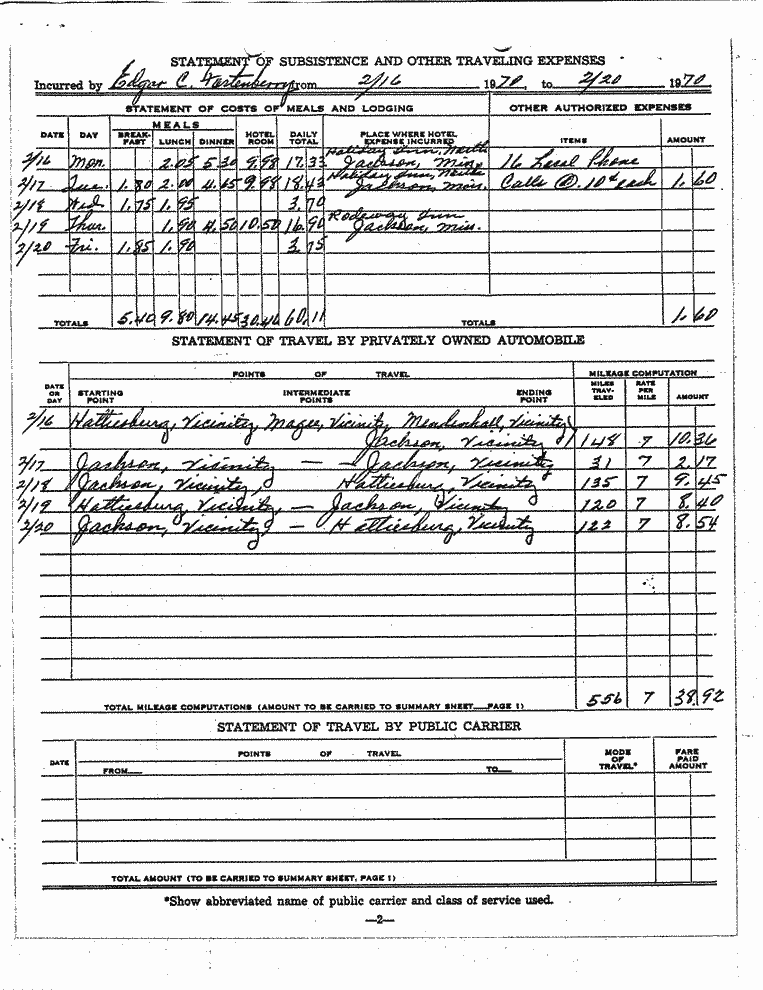 STATEMENT OF SUBSISTENCE AND OTHER TRAVELING EXPENSES
Incurred by Edgar C. Fortenberry from 2/16 1970, to 2/20 1970
STATEMENT OF COSTS OF MEALS AND LODGING OTHER AUTHORIZED EXPENSES
DATE DAY MEALS BREAK-FAST LUNCH DINNER HOTEL ROOM DAILY TOTAL PLACE WHERE HOTEL EXPENSE INCURRED ITEMS AMOUNT
2/16 Mon. 2.05 5.30 9.98 17.33 Holiday Inn, North Jackson, Miss. 16 Local Phone
2/17 Tue. 1.80 2.00 4.65 9.98 18.43 Holiday Inn, North Jackson, Miss. Calls @ .10¢ each 1.60
2/18 Wed. 1.75 1.95 3.70
2/19 Thur. 1.90 4.50 10.50 16.90 Rodeway Inn Jackson, Miss.
2/20 Fri. 1.85 1.90 3.75
TOTALS 5.40 9.80 14.45 30.46 60.11 TOTALS 1.60
STATEMENT OF TRAVEL BY PRIVATELY OWNED AUTOMOBILE
POINTS OF TRAVEL MILEAGE COMPUTATION
DATE OR DAY STARTING POINT INTERMEDIATE POINTS ENDING POINT MILES TRAV-ELED RATE PER MILE AMOUNT
2/16 Hattiesburg, Vicinity, Magee, Vicinity, Mendenhall, Vicinity,
Jackson, Vicinity 148 7 10.36
2/17 Jackson, Vicinity — — Jackson, Vicinity 31 7 2.17
2/18 Jackson, Vicinity, Hattiesburg, Vicinity 135 7 9.45
2/19 Hattiesburg, Vicinity, — Jackson, Vicinity 120 7 8.40
2/20 Jackson, Vicinity, — Hattiesburg, Vicinity 122 7 8.54
TOTAL MILEAGE COMPUTATIONS (AMOUNT TO BE CARRIED TO SUMMARY SHEET—PAGE 1) 556 7 38.92
STATEMENT OF TRAVEL BY PUBLIC CARRIER
DATE POINTS OF TRAVEL MODE OF TRAVEL* FARE PAID AMOUNT
FROM— TO—
TOTAL AMOUNT (TO BE CARRIED TO SUMMARY SHEET, PAGE 1)
*Show abbreviated name of public carrier and class of service used.
—2—